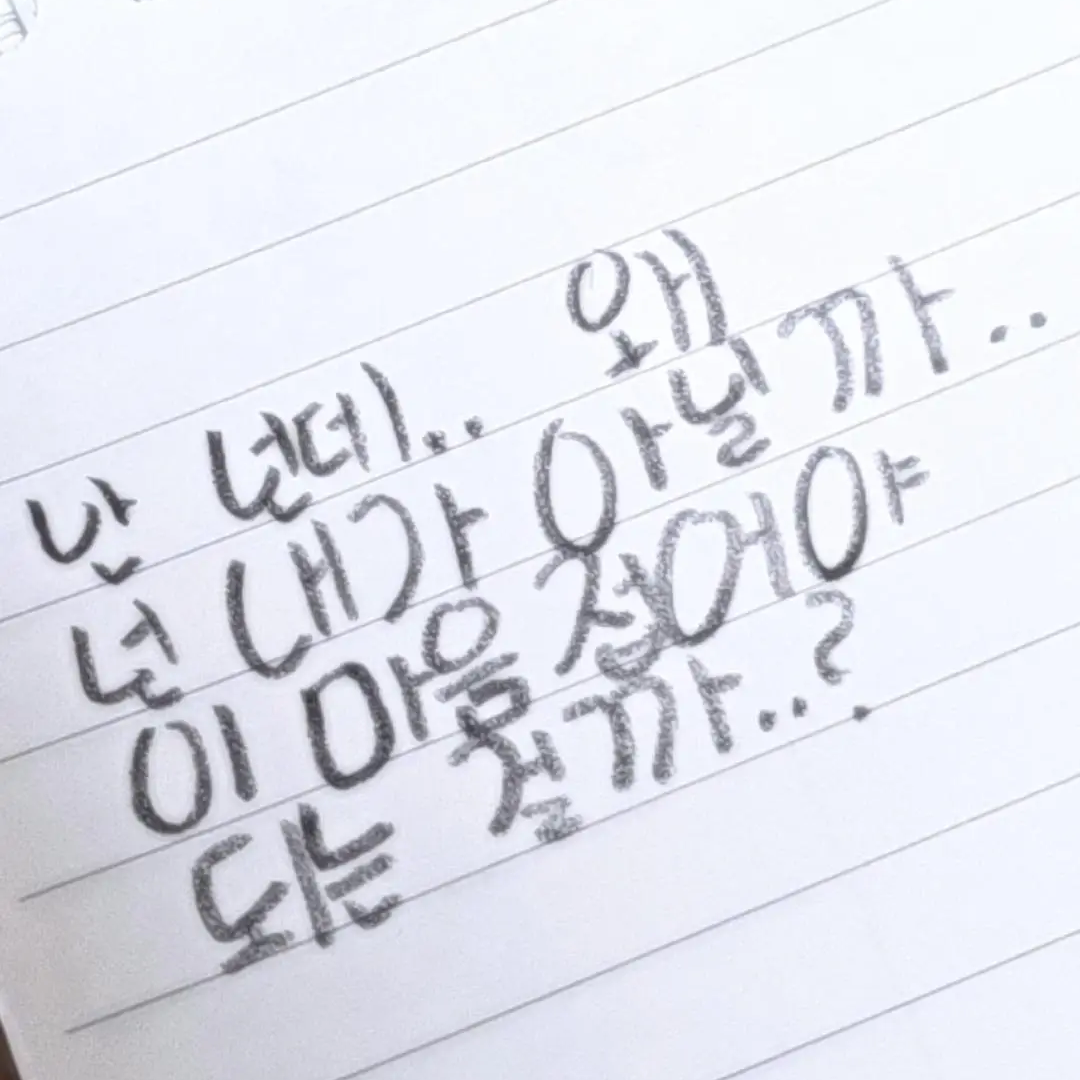 난 넌데.. 왜
넌 내가 아닐까..
이 마음 접어야
되는 걸까..?